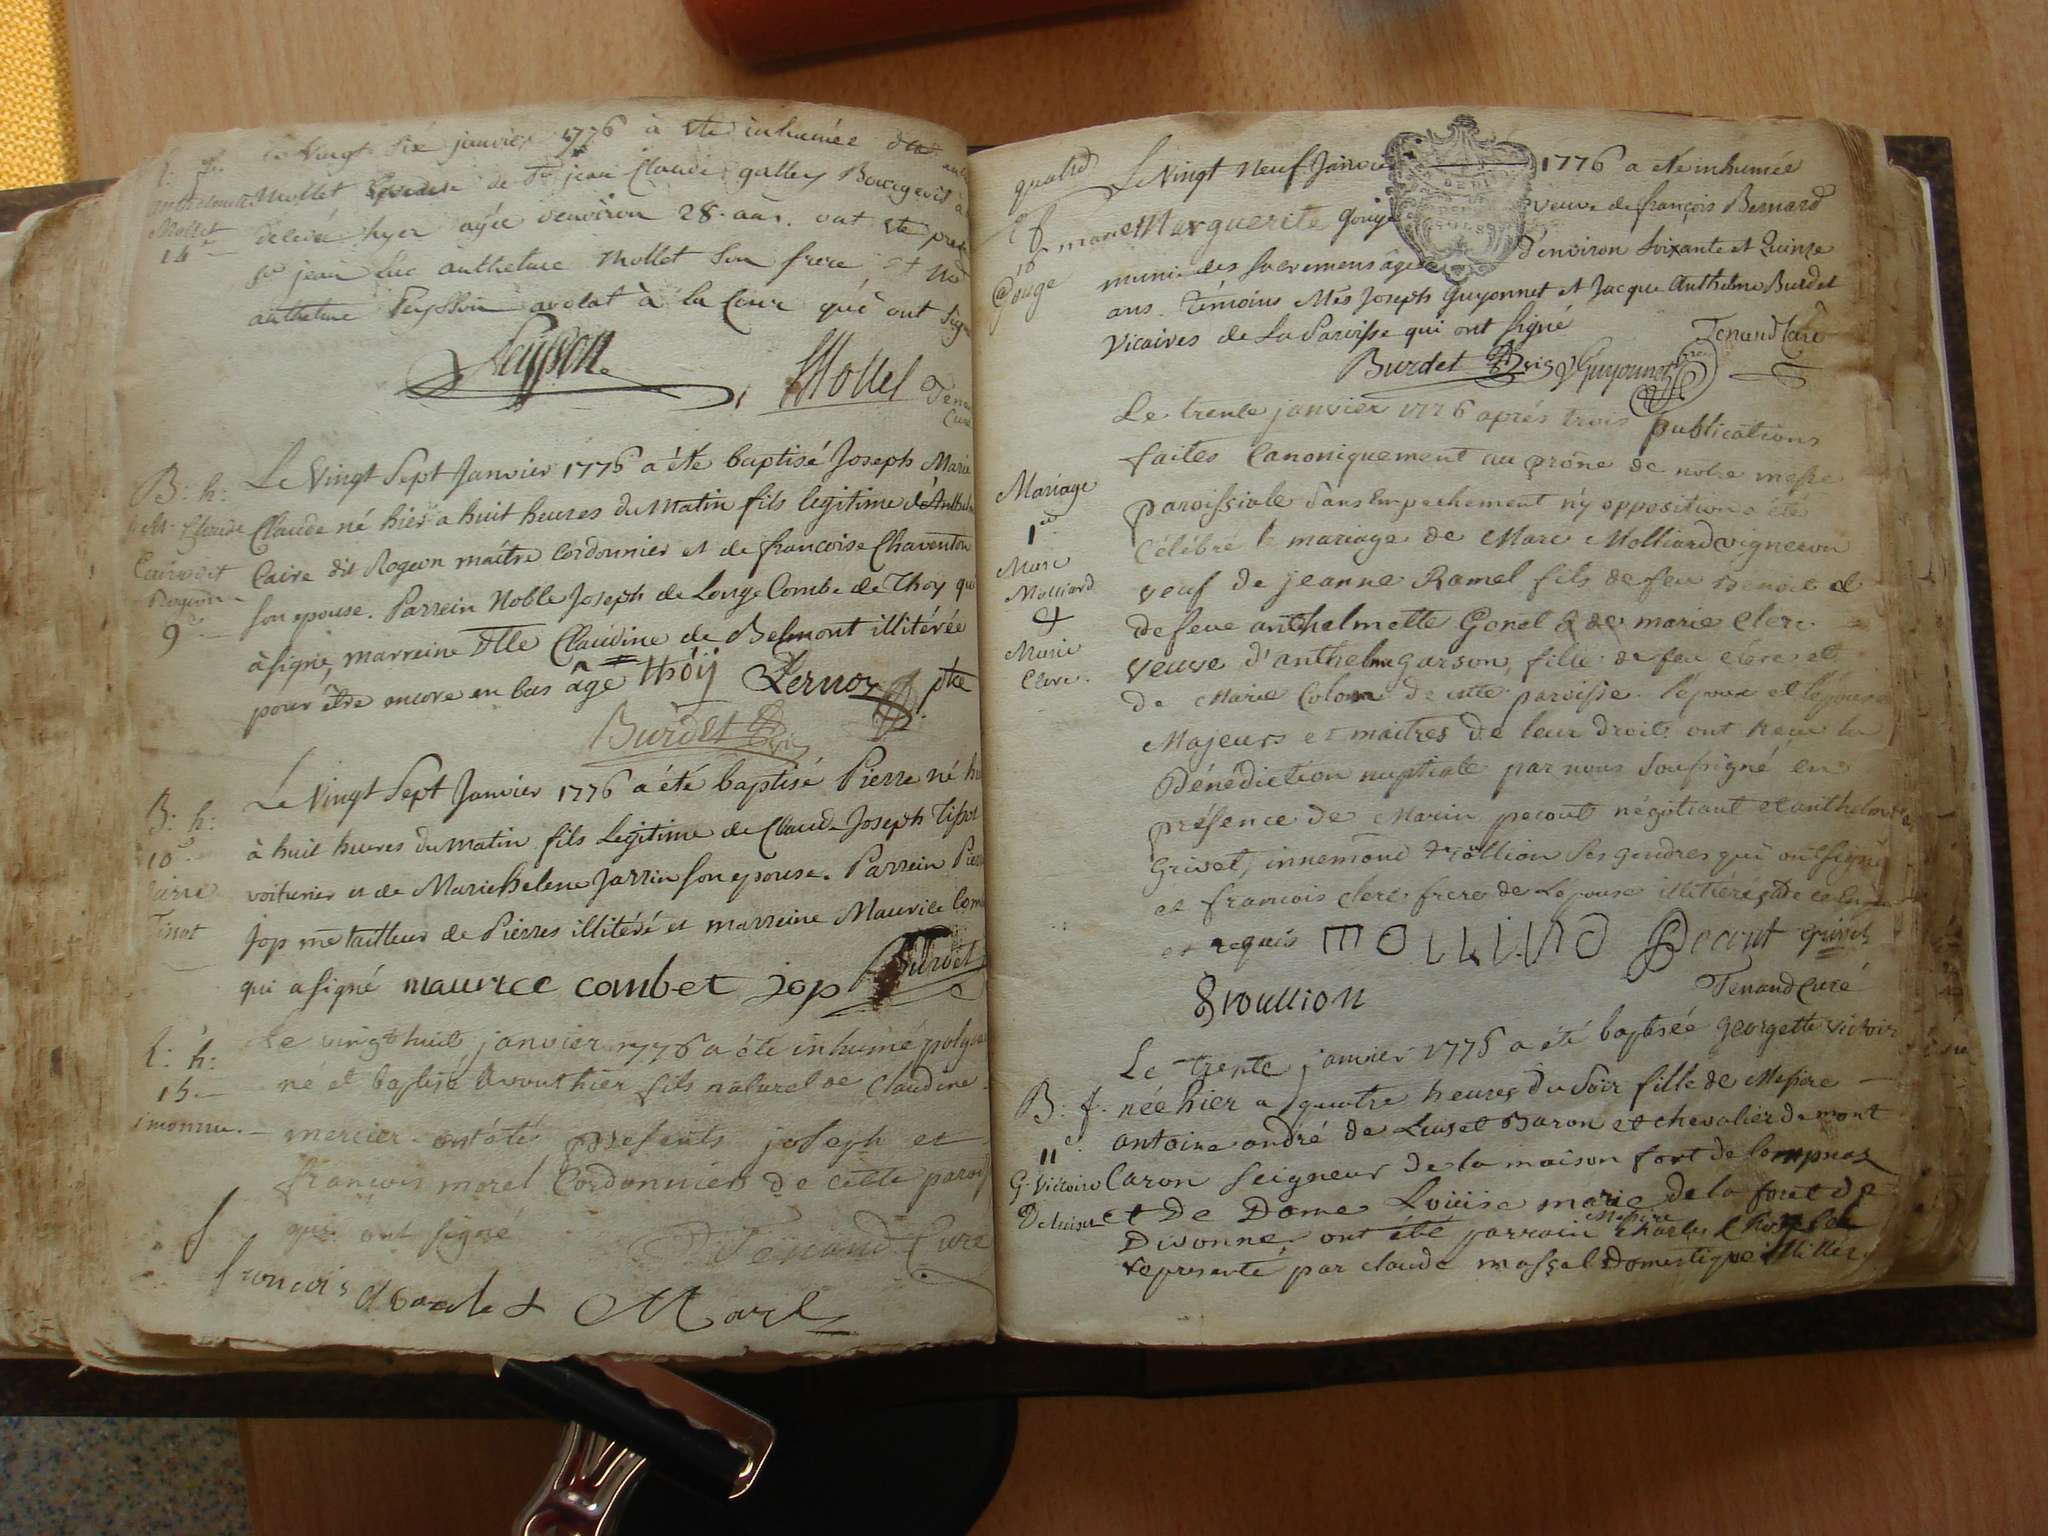 Le Vingt Six janvier 1776 à été inhumée dlle
antelmette Mollet Epouse de Sr jean Claude galley Bourgeois
Mollet
14e
décédé hyer agée d'environ 28 ans. ont été
Sr jean Luc anthelme Mollet Son frere et
anthelme Peysson avocat à la Cour qui ont signé
Peysson Mollet
Curé
B: h:
Claude
Caire dit
Rogeon
9e
Le Vingt Sept Janvier 1776 a été baptisé Joseph Marie
Claude né hier a huit heures du Matin fils legitime d'
Caire dit Rogeon maître Cordonnier et de françoise Chaventon
son epouse. Parrein Noble Joseph de Longe Combe de Thoy qui
à signé, marreine Dlle Claudine de Belmont illitérée
pour être encore en bas âge Thoÿ ptre
Burdet vic
B: h:
10e
pierre
Tissot
Le Vingt Sept Janvier 1776 a été baptisé Pierre né
à huit heures du Matin fils Legitime de Claude Joseph Tissot
voiturier et de Marie helene Jarrin son epouse. Parrein Pierre
Jop me tailleur de Pierres illitéré et marreine Maurice
qui a signé maurice combet jop Burdet
E: h:
15
inconnu.
Le vingt huit janvier 1776 a été inhumé
né et baptisé fils naturel de Claudine
mercier ont été presents joseph et
françois morel Cordonniers de cette
qui ont signé
Tenand Curé
francois morel
quatre
E f
marie
16
Gouge
Le Vingt Neuf Janvier 1776 a été inhumée
Marguerite veuve de françois Bernard
munie des sacremens âgée d'environ soixante et Quinze
ans. Témoins Mes Joseph Guyonnet et Jacque Anthelme Burdet
Vicaires de la Paroisse qui ont signé Tenand Curé
Burdet vic Guyonnet
Mariage
1er
Marc
Molliard
&
Marie
Clerc.
Le trente janvier 1776 aprés trois publications
faites Canoniquement au prône de notre messe
paroissiale Sans Empechement n'y opposition a été
Célébré le mariage de Marc Molliard vigneron
veuf de jeanne Ramel fils de feu Benoit et
de feue anthelmette Gonel & de marie Clerc
veuve d'anthelme garson, fille de feu clerc et
de Marie Colom de cette paroisse. l'époux et l'épouse
Majeurs et maitres de leur droits ont recu la
Bénédiction nuptiale par nous Soussigné en
présence de Marin pecout négotiant et anthelme
Grivet, innemond ses gendres qui ont signé
et francois clerc frere de L'epouse illitérés de ce
et requis MOLLIARD Pecout grivet
Tenand Curé
B: f.
11e
G. Victoire
De luiset
Le trente janvier 1776 a été baptisée georgette victoire
née hier a quatre heures du Soir fille de Messire
antoine andré de Luiset Baron et chevalier de mont
Caron Seigneur de la maison fort de lompnas
et de Dame Louise marie de la forêt de
Divonne. ont été parrain Messire Charles
representé par claude massal Domestique illitéré